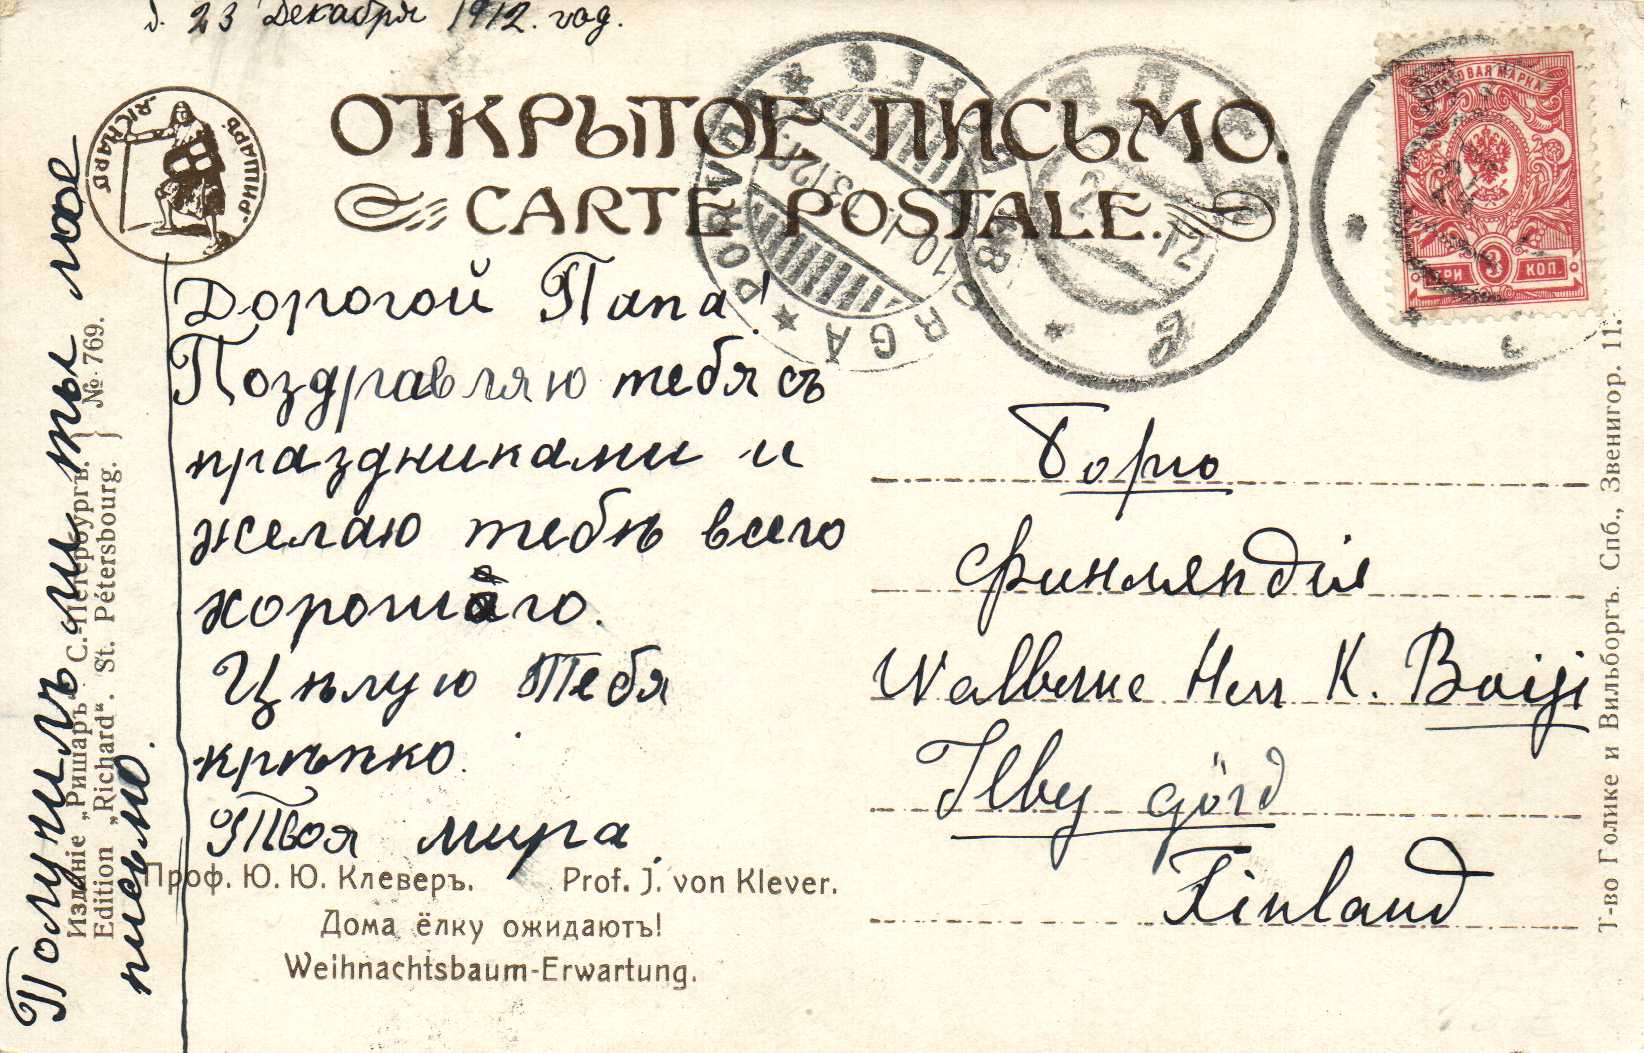 д. 23 Декабря 1912. год.
RICHARD РИШАРЪ
ОТКРЫТОЕ ПИСЬМО.
CARTE POSTALE.
PORVOO BORGÅ
10.I.13.12
ПОЧТОВАЯ МАРКА
ТРИ 3 КОП.
Дорогой Папа!
Поздравляю тебя съ
праздниками и
желаю тебѣ всего
хорошаго.
Цѣлую Тебя
крѣпко.
Твоя мира
Получилъ ли ты мое
письмо.
Изданіе „Ришаръ“. С.-Петербургъ.
Edition „Richard“. St. Pétersbourg.
№ 769.
Проф. Ю. Ю. Клеверъ. Prof. J. von Klever.
Дома ёлку ожидаютъ!
Weihnachtsbaum-Erwartung.
Борго
Финляндія
Herr K.
gård
Finland
Т-во Голике и Вильборгъ. Спб., Звенигор. 11.